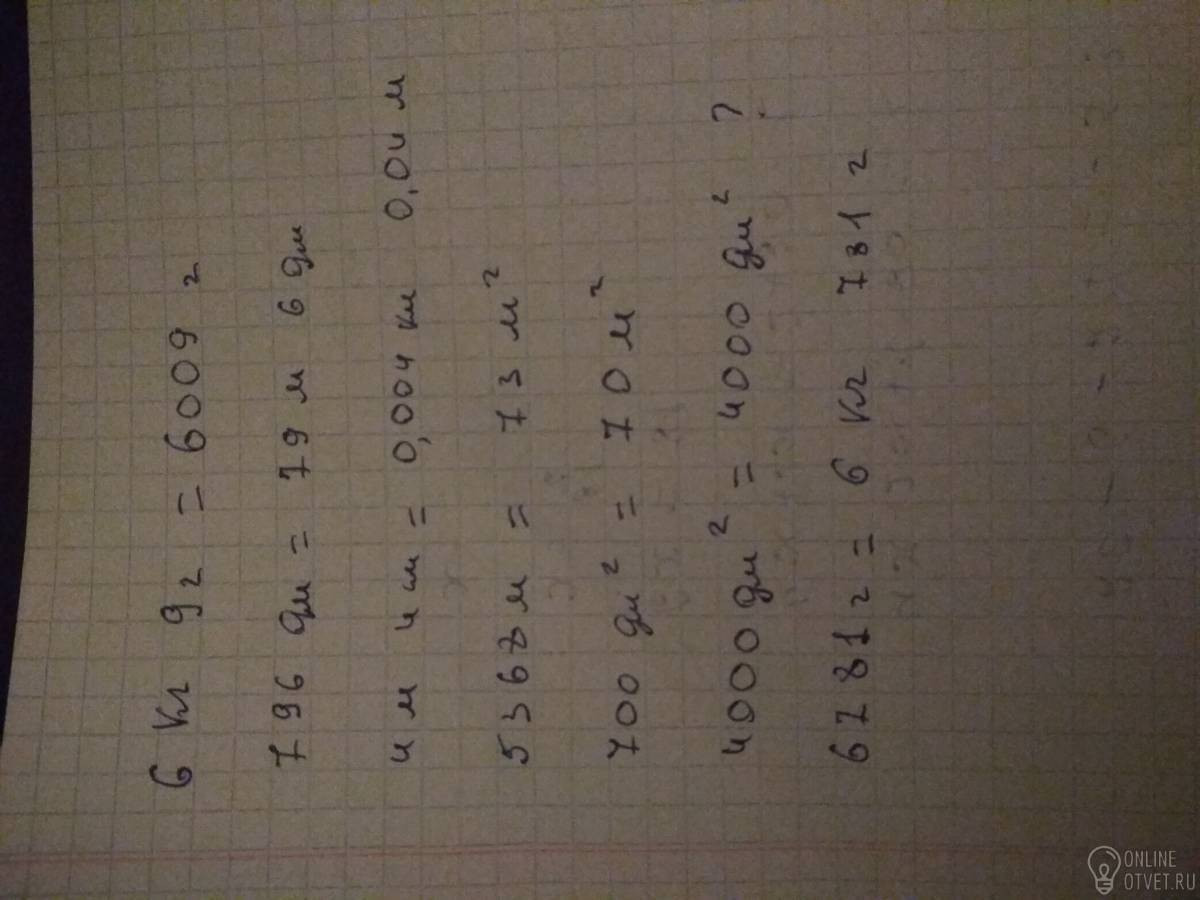 6 кг 9 г = 6009 г
796 дм = 79 м 6 дм
4 м 4 см = 0,004 км 0,04 м
5368 м = 73 м²
700 дм² = 70 м²
4000 дм² = 4000 дм² ?
6781 г = 6 кг 781 г
ONLINE
OTVET.RU